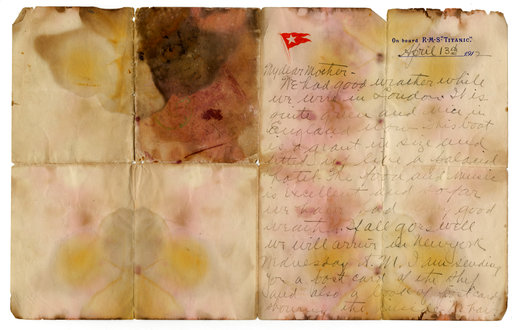 On board R·M·S "TITANIC".
April 13th 1912
My dear Mother -
We had good weather while
we were in London. It is
quite green and nice in
England now. This boat
is a giant in size and
fitted up like a palacial
hotel. The food and music
is excellent and so far
we have had good
weather. If all goes well
we will arrive in New York
Wednesday A.M. I am sending
for a post card of the ship
and also a book of post cards
showing the inside